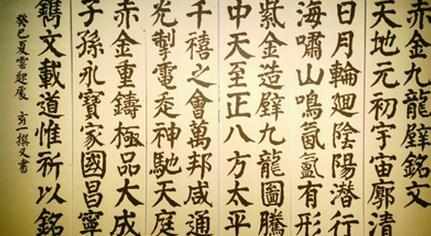 赤金九龍璧銘文
天地元初宇宙廓清
日月輪廻陰陽潛行
海嘯山鳴氤氳有形
紫金造璧九龍圖騰
中天至正八方太平
千禧之會萬邦咸通
光掣電走神馳天庭
赤金重鑄極品大成
子孫永寶家國昌寧
鐫文載道惟祈以銘
癸巳夏雲起處 一撰又書